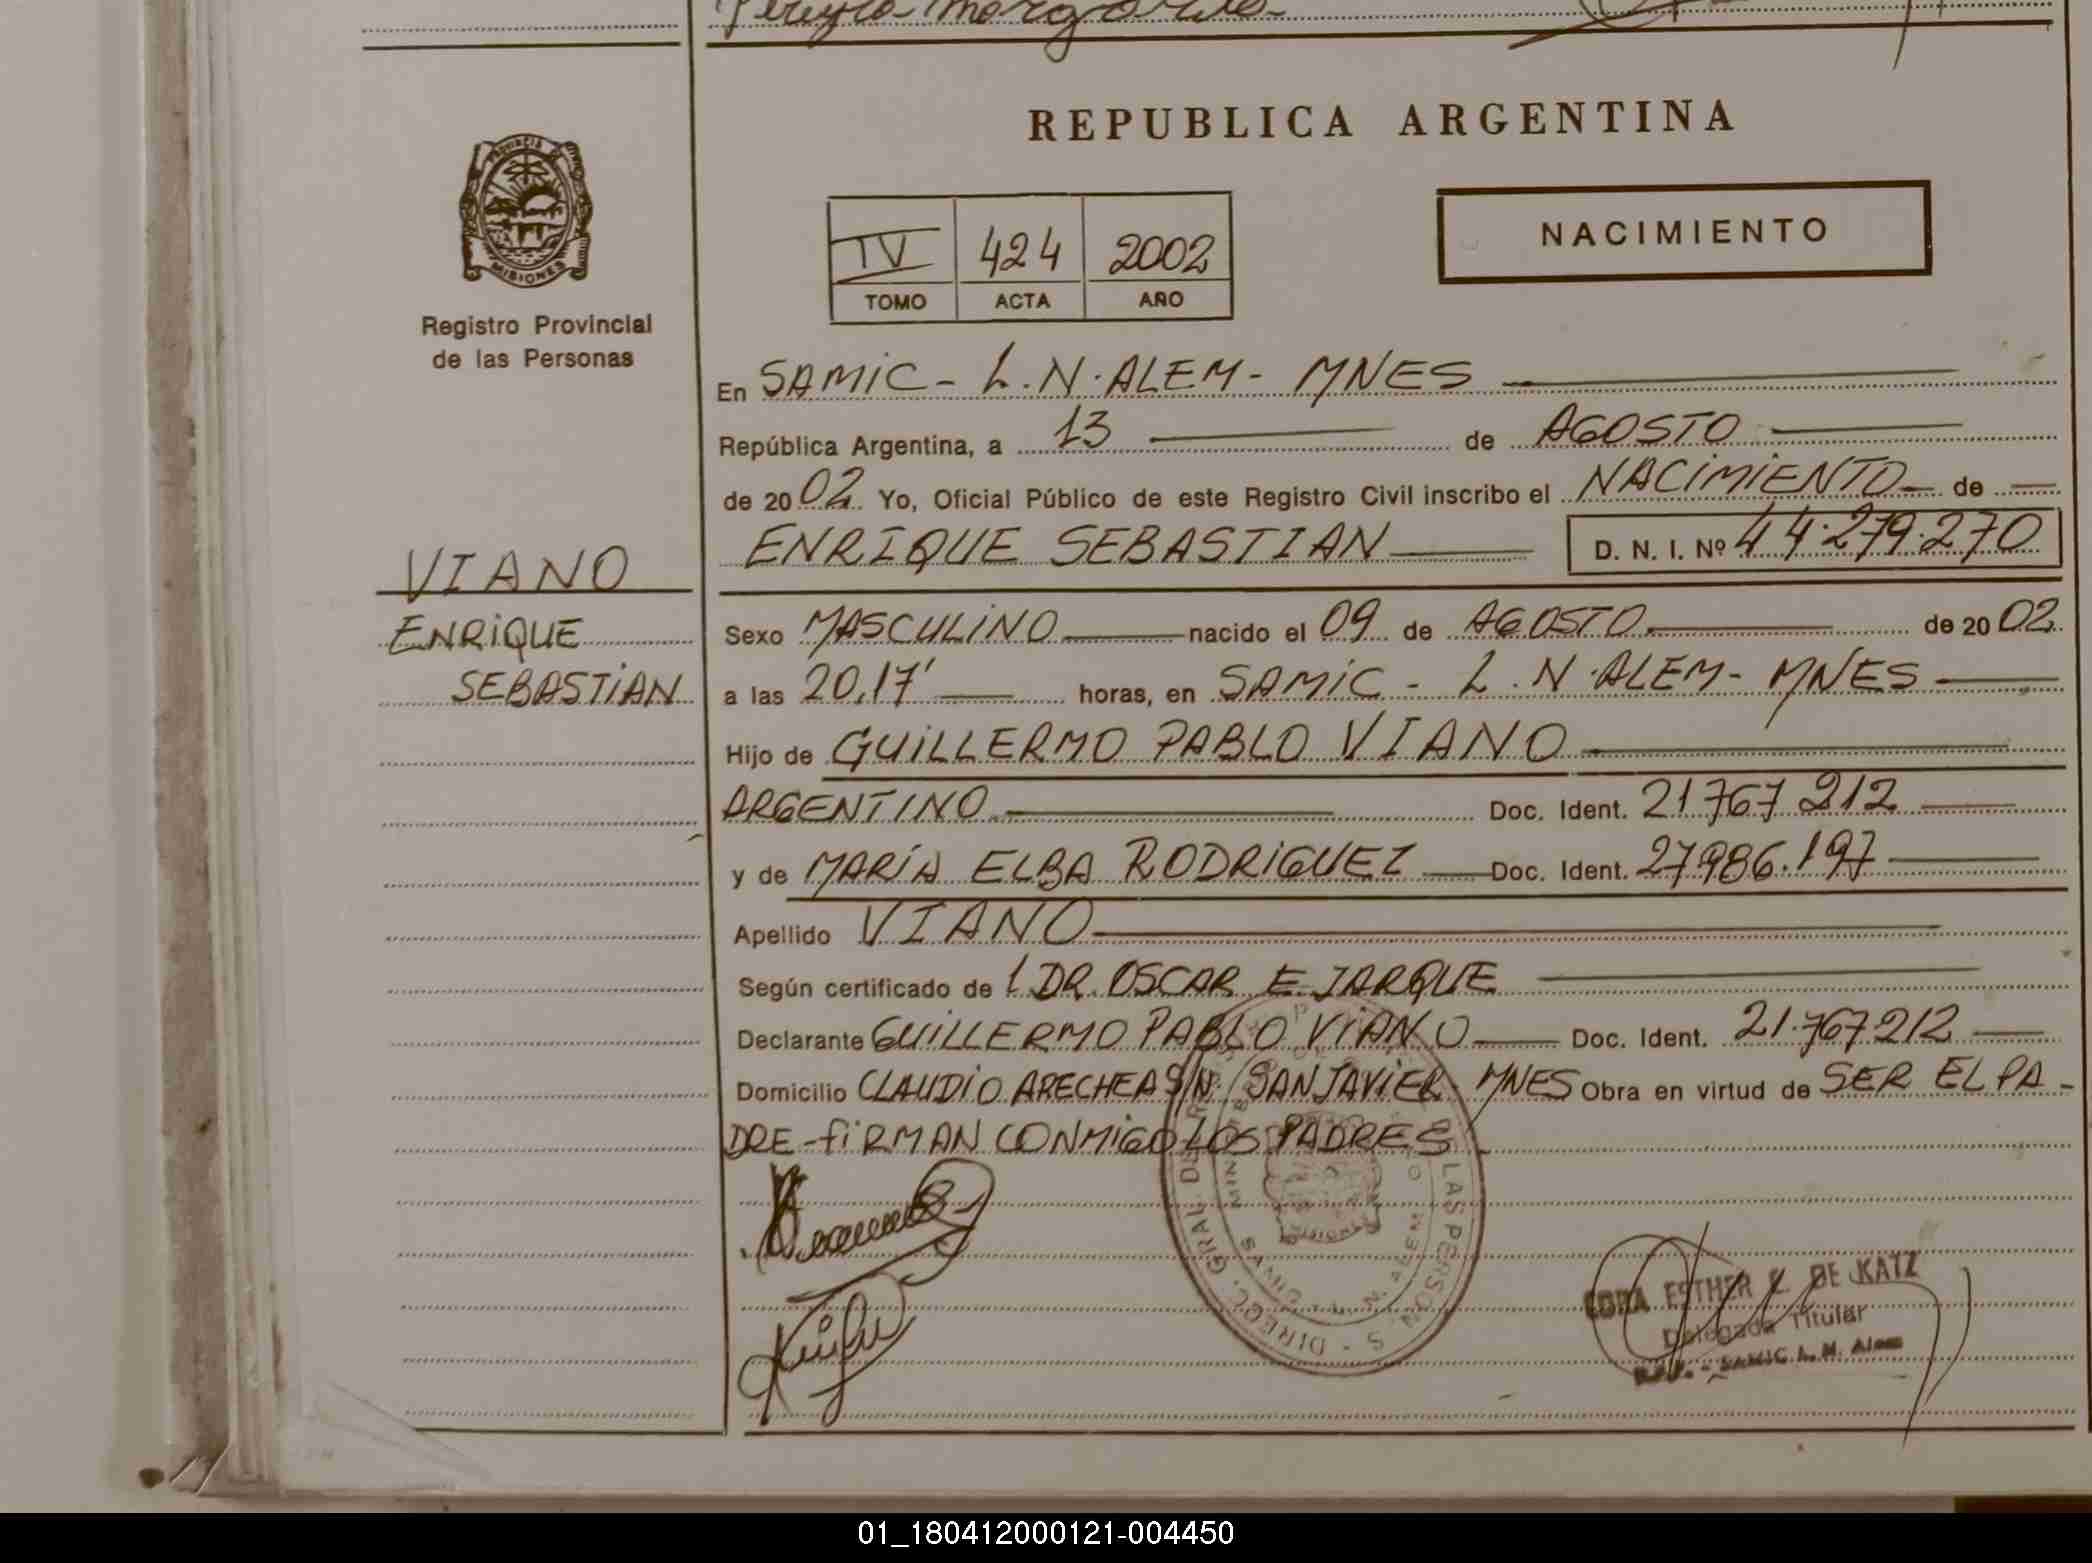 Pereyra Margarita
REPUBLICA ARGENTINA
PROVINCIA DE
MISIONES
Registro Provincial
de las Personas
IV 424 2002
TOMO ACTA AÑO
NACIMIENTO
En SAMIC - L.N. ALEM - MNES
República Argentina, a 13 de AGOSTO
de 2002 Yo, Oficial Público de este Registro Civil inscribo el NACIMIENTO de
ENRIQUE SEBASTIAN D. N. I. Nº 44.279.270
VIANO
ENRIQUE
SEBASTIAN
Sexo MASCULINO nacido el 09 de AGOSTO de 2002
a las 20,17' horas, en SAMIC - L.N. ALEM - MNES
Hijo de GUILLERMO PABLO VIANO
ARGENTINO Doc. Ident. 21767 212
y de MARÍA ELBA RODRIGUEZ Doc. Ident. 27986.197
Apellido VIANO
Según certificado de 1 DR. OSCAR E. JARQUE
Declarante GUILLERMO PABLO VIANO Doc. Ident. 21.767212
Domicilio CLAUDIO ARECHEA S/N. SAN JAVIER - MNES Obra en virtud de SER EL PA-
DRE - FIRMAN CONMIGO LOS PADRES
DIREC. GRAL. DE LAS PERSONAS
L. N. ALEM
MISIONES
ESTHER DE KATZ
Delegada Titular
SAMIC L. N. Alem
01_180412000121-004450